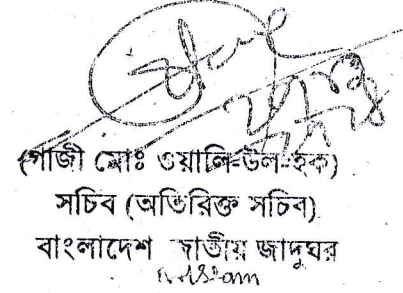 (গাজী মোঃ ওয়ালি-উল-হক)
সচিব (অতিরিক্ত সচিব)
বাংলাদেশ জাতীয় জাদুঘর